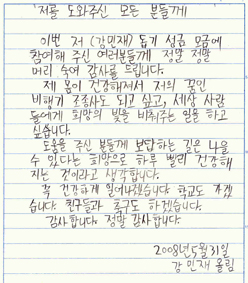 저를 도와주신 모든 분들께
이번 저 (강민재) 돕기 성금 모금에
참여해 주신 여러분들께 정말 정말
머리 숙여 감사를 드립니다.
제 몸이 건강해져서 저의 꿈인
비행기 조종사도 되고 싶고, 세상 사람
들에게 희망의 빛을 비춰주는 일을 하고
싶습니다.
도움을 주신 분들께 보답하는 길은 나을
수 있다는 희망으로 하루 빨리 건강해
지는 것이라고 생각합니다.
꼭 건강하게 일어나겠습니다 학교도 가겠
습니다. 친구들과 축구도 하겠습니다.
감사합니다. 정말 감사합니다.
2008년 5월 31일
강민재 올림